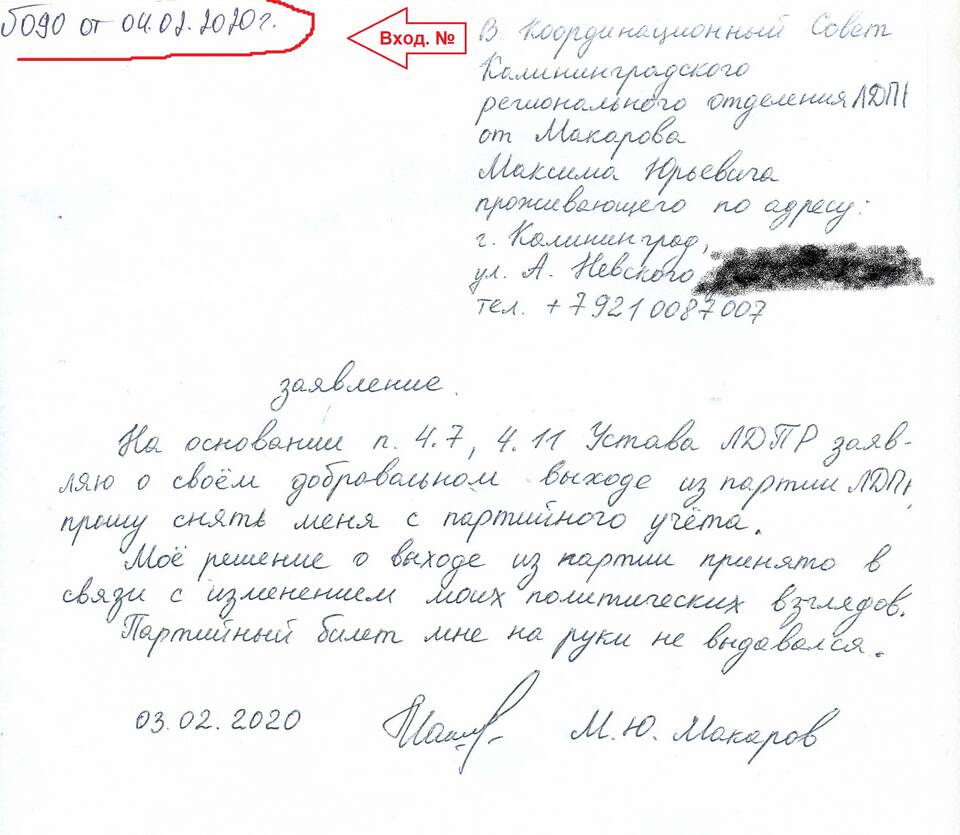 5090 от 04.02.2020г.
Вход. №
В Координационный Совет
Калининградского
регионального отделения ЛДПР
от Макарова
Максима Юрьевича
проживающего по адресу:
г. Калининград,
ул. А. Невского
тел. +79210087007
заявление.
На основании п. 4.7, 4.11 Устава ЛДПР заяв-
ляю о своём добравальном выходе из партии ЛДПР,
прошу снять меня с партийного учёта.
Моё решение о выходе из партии принято в
связи с изменением моих политических взглядов.
Партийный билет мне на руки не выдавался.
03.02.2020
М.Ю. Макаров